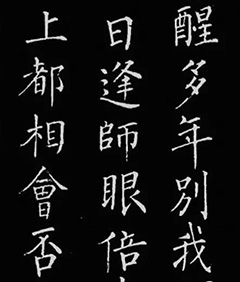 醒多年別我
日逢師眼倍
上都相會否